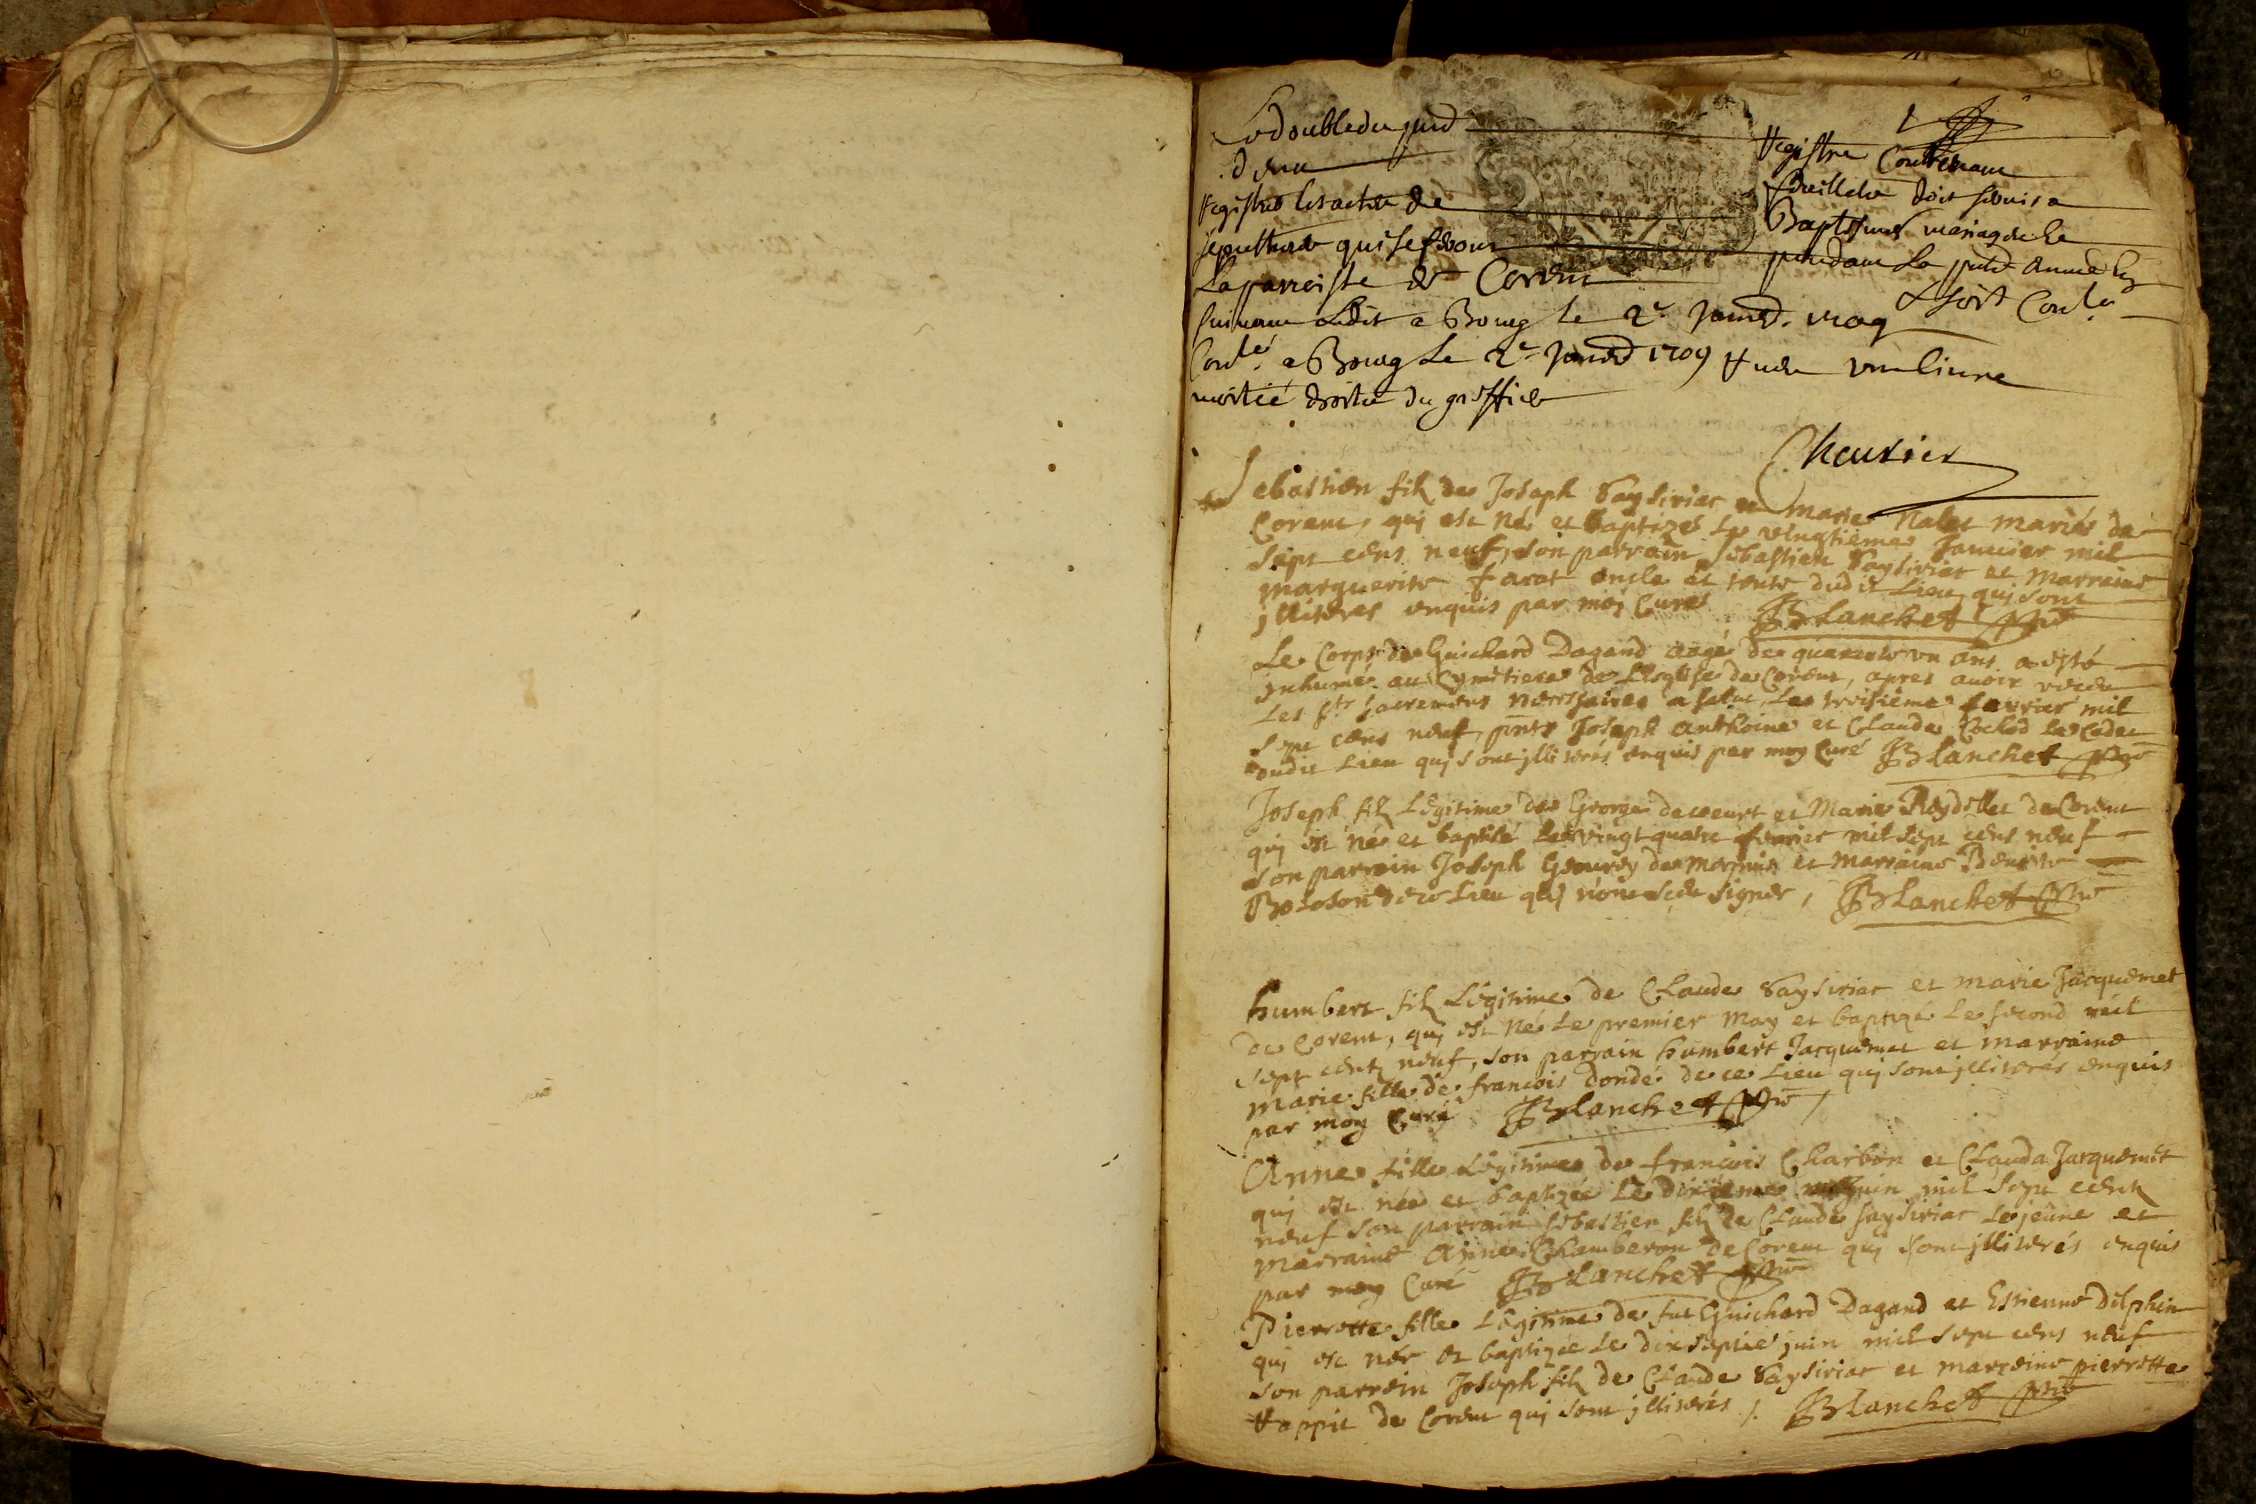 Le double du pnt Registre Contenant
deux feuillets doit servir a
Registrer les actes de Baptesmes mariages
sepultures qui se feront pendant la pnte année
La parroisse de Corent
suivant Ledit a Bourg le 2e Janvr 1709
Conlé a Bourg Le 2e Janvr 1709 Receu une livre
moitié droits du greffier
Chevrier
Sebastien filz de Joseph Saysiriat et Marie Nalet mariés de
Corent, qui est né et baptizé le vingtième Janvier mil
sept cens neuf, son parrain Sebastien Saysiriat et marraine
marguerite farat oncle et tente dudit Lieu, qui sont
jlliterés enquis par moy Curé Blanchet ptre
Le Corps de Guichard Dagand aagé de quarente un ans a esté
inhumé au Cymetiere de L'Esglise de Corent, apres avoir receu
Les Sts sacremens necessaires a salut Le troisième fevrier mil
sept cens neuf, pnts Joseph Anthoine et Claude le Cadet
dudit Lieu qui sont jlliterés enquis par moy Curé Blanchet ptre
Joseph filz Légitime de George et Marie Reydellet de Corent
qui est né et baptisé Le vingt quatre fevrier mil sept cens neuf
son parrain Joseph de et marraine
de ce Lieu qui n'ont sceu signer, Blanchet ptre
humbert filz Légitime de Claude Saysiriat et marie Jacquemet
de Corent, qui est né Le premier May et baptizé Le second mil
sept cents neuf, son parrain humbert Jacquemet et marraine
Marie fille de francois dondé de ce Lieu qui sont jlliterés enquis
par moy Curé Blanchet ptre
Anne fille Légitime de francois Charbon et Clauda Jacquemet
qui est née et baptizée Le dixième juin mil sept cents
neuf son parrain Sebastien filz de Claude Saysiriat Le jeune et
marraine Anne Chamberon de Corent qui sont jlliterés enquis
par moy Curé Blanchet ptre
Pierrette fille Légitime de fut Guichard Dagand et Estienne Delphin
qui est née et baptizée Le dix septie juin mil sept cens neuf
son parrein Joseph filz de Claude Saysiriat et marreine pierrette
de Corent qui sont jlliterés /. Blanchet ptre